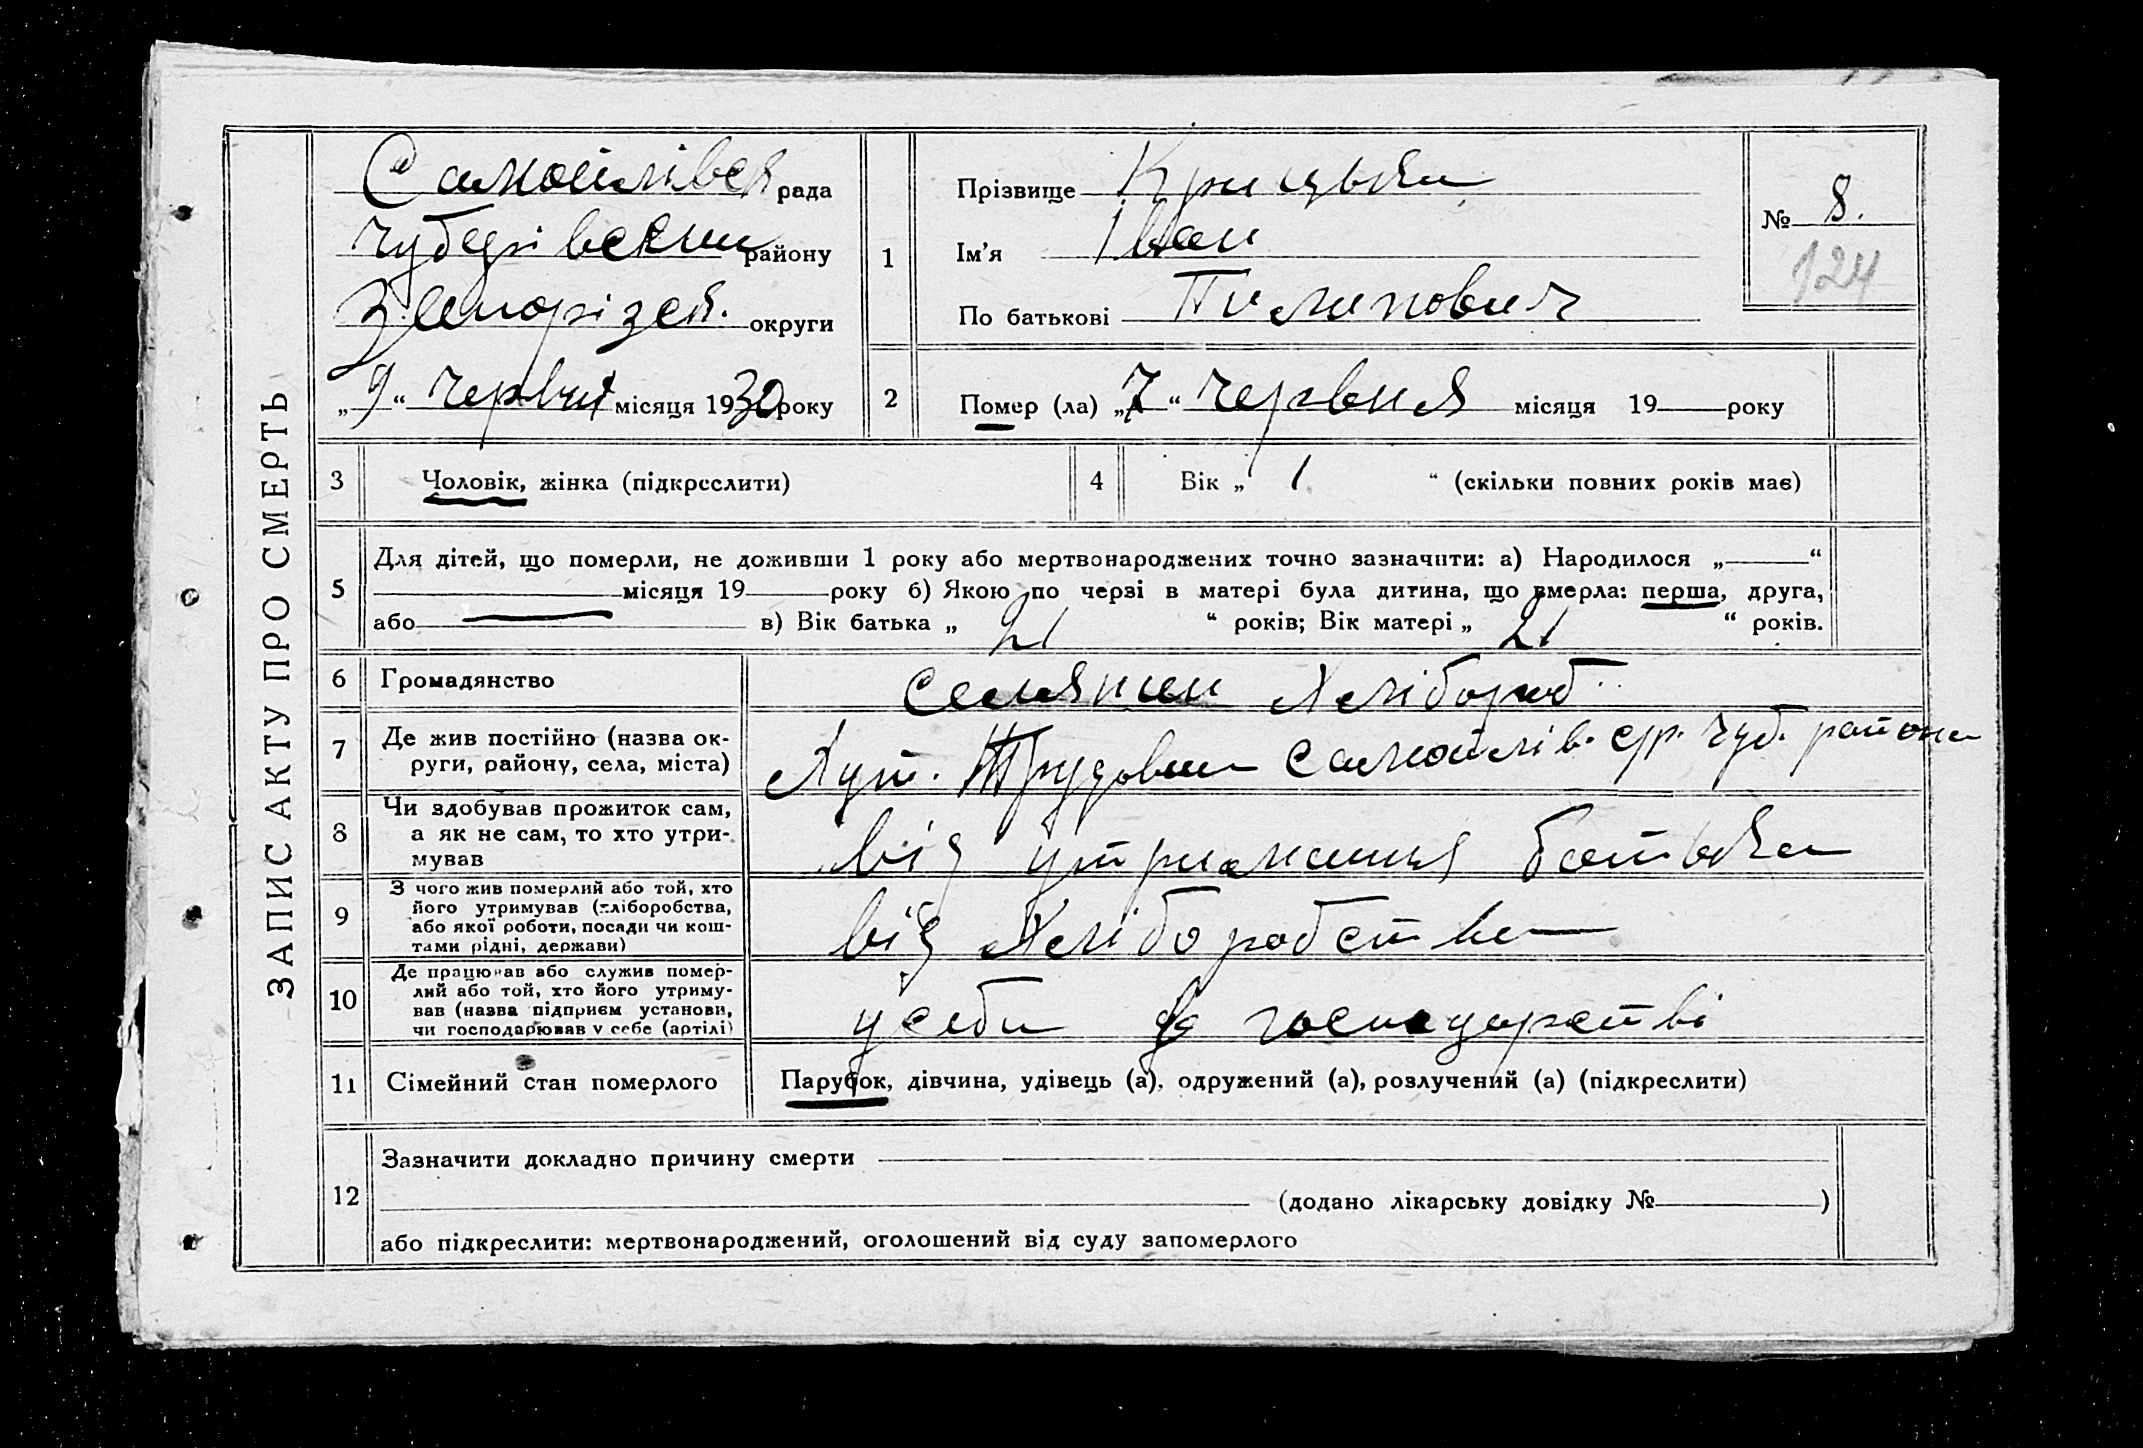 ЗАПИС АКТУ ПРО СМЕРТЬ
Самойлівськ рада
Чубарівський району
Запорізськ. округи
„9“ червня місяця 1930 року
1
Прізвище Крицька
Ім’я Іван
По батькові Пилипович
№ 8.
124
2
Помер (ла) „7“ червня місяця 19 року
3
Чоловік, жінка (підкреслити)
4
Вік „ 1 “ (скільки повних років має)
5
Для дітей, що померли, не доживши 1 року або мертвонароджених точно зазначити: а) Народилося „ “
місяця 19 року б) Якою по черзі в матері була дитина, що вмерла: перша, друга,
або в) Вік батька „ 21 “ років; Вік матері „ 21 “ років.
6
Громадянство
селянин хлібороб
7
Де жив постійно (назва ок-
руги, району, села, міста)
Хут. Трудовий Самойлів. с/р. Чуб. района
8
Чи здобував прожиток сам,
а як не сам, то хто утри-
мував
від утримання батька
9
З чого жив померлий або той, хто
його утримував (хліборобства,
або якої роботи, посади чи кош-
тами рідні, держави)
від хліборобства
10
Де працював або служив помер-
лий або той, хто його утриму-
вав (назва підприєм установи,
чи господарював у себе (артілі)
у себи в господарстві
11
Сімейний стан померлого
Парубок, дівчина, удівець (а), одружений (а), розлучений (а) (підкреслити)
12
Зазначити докладно причину смерти
(додано лікарську довідку № )
або підкреслити: мертвонароджений, оголошений від суду запомерлого